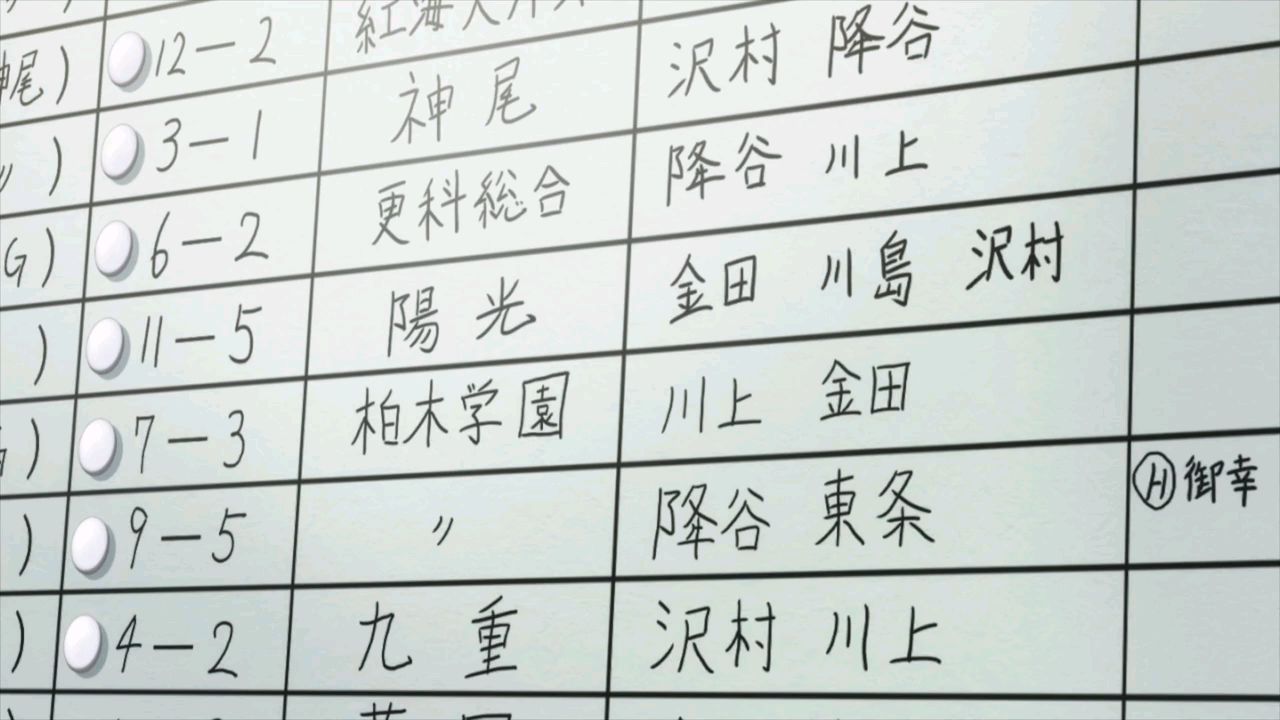 尾) 12－2 紅海大
〃) 3－1 神尾 沢村 降谷
G) 6－2 更科総合 降谷 川上
) 11－5 陽光 金田 川島 沢村
) 7－3 柏木学園 川上 金田
) 9－5 〃 降谷 東条 Ⓗ御幸
) 4－2 九重 沢村 川上